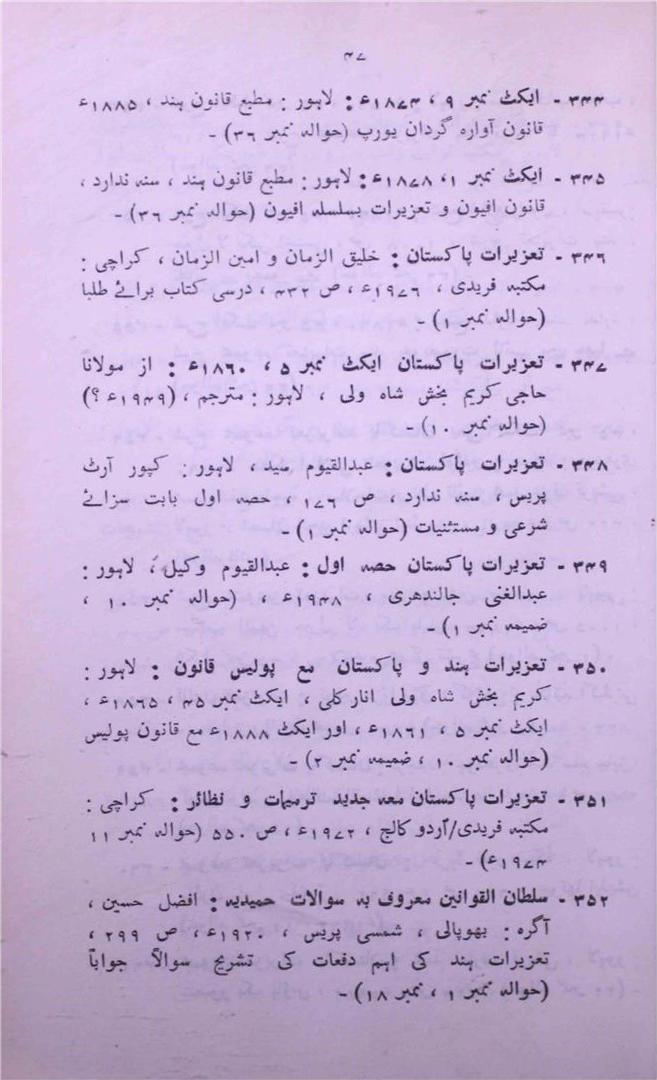 ۴۷
۳۴۴ - ایکٹ نمبر ۹ ، ۱۸۷۴ء : لاہور : مطبع قانون ہند ، ۱۸۸۵ء
قانون آوارہ گردان یورپ (حوالہ نمبر ۳۶) -
۳۴۵ - ایکٹ نمبر ۱، ۱۸۷۸ء : لاہور : مطبع قانون ہند ، سنہ ندارد ،
قانون افیون و تعزیرات بسلسلہ افیون (حوالہ نمبر ۳۶) -
۳۴۶ - تعزیرات پاکستان : خلیق الزمان و امین الزمان ، کراچی :
مکتبہ فریدی ، ۱۹۷۶ء ، ص ۴۳۲ ، درسی کتاب برائے طلبا
(حوالہ نمبر ۱) -
۳۴۷ - تعزیرات پاکستان ایکٹ نمبر ۵ ، ۱۸۶۰ء : از مولانا
حاجی کریم بخش شاہ ولی ، لاہور : مترجم ، (۱۹۴۹ء ؟)
(حوالہ نمبر ۱۰) -
۳۴۸ - تعزیرات پاکستان : عبدالقیوم سید ، لاہور : کپور آرٹ
پریس ، سنہ ندارد ، ص ۱۷۶ ، حصہ اول بابت سزائے
شرعی و مستثنیات (حوالہ نمبر ۱) -
۳۴۹ - تعزیرات پاکستان حصہ اول : عبدالقیوم وکیل ، لاہور :
عبدالغنی جالندھری ، ۱۹۴۸ء ، (حوالہ نمبر ۱۰ ،
ضمیمہ نمبر ۱) -
۳۵۰ - تعزیرات ہند و پاکستان مع پولیس قانون : لاہور :
کریم بخش شاہ ولی انارکلی ، ایکٹ نمبر ۴۵ ، ۱۸۶۵ء ،
ایکٹ نمبر ۵ ، ۱۸۶۱ء ، اور ایکٹ ۱۸۸۸ء مع قانون پولیس
(حوالہ نمبر ۱۰ ، ضمیمہ نمبر ۲) -
۳۵۱ - تعزیرات پاکستان معہ جدید ترمیمات و نظائر : کراچی :
مکتبہ فریدی/اردو کالج ، ۱۹۷۲ء ، ص ۵۵۰ (حوالہ نمبر ۱۱
۱۹۷۴ء) -
۳۵۲ - سلطان القوانین معروف بہ سوالات حمیدیہ : افضل حسین ،
آگرہ : بھوپالی ، شمسی پریس ، ۱۹۲۰ء ، ص ۲۹۹ ،
تعزیرات ہند کی اہم دفعات کی تشریح سوالاً جواباً
(حوالہ نمبر ۱ ، نمبر ۱۸) -